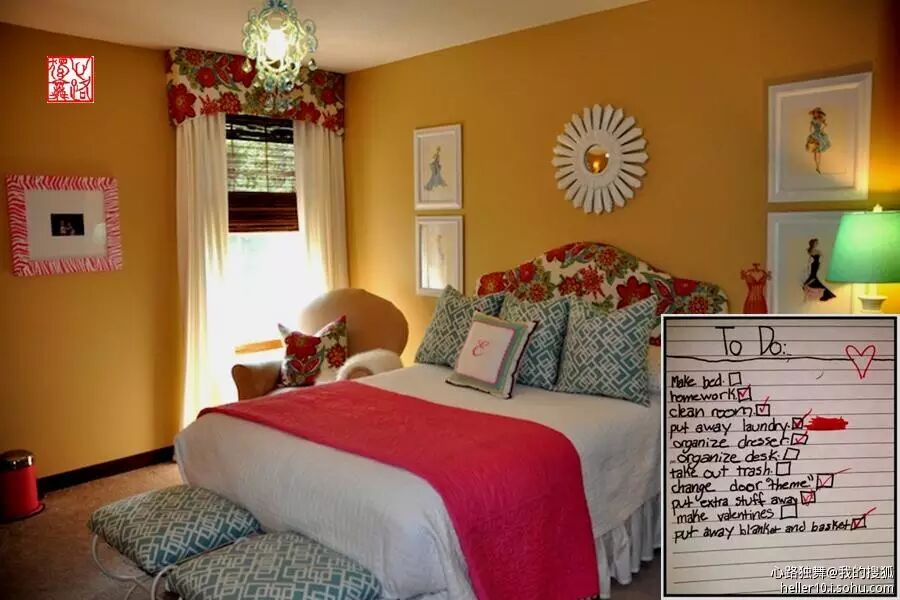 心路独舞
E
To Do:
Make bed.
homework
clean room.
put away laundry.
organize dresser.
organize desk.
take out trash.
change door "theme"
put "extra stuff away
make valentines
put away blanket and basket
心路独舞@我的搜狐
heller10.t.sohu.com